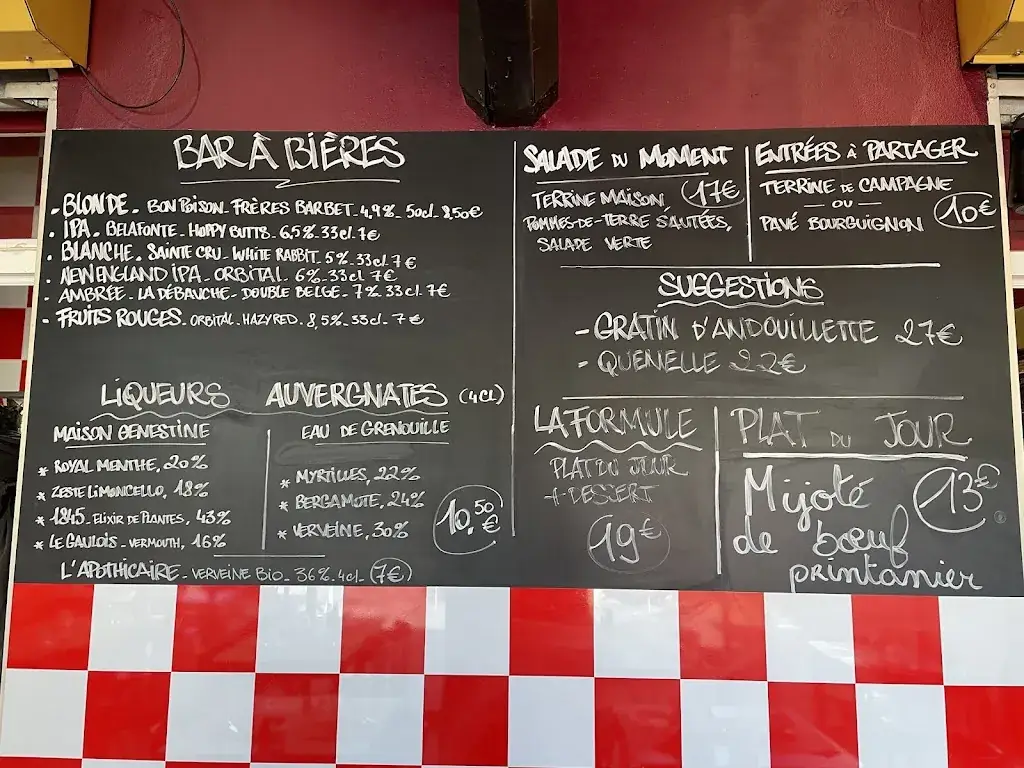 BAR À BIÈRES
- BLONDE. BON POISON. FRÈRES BARBET. 4,9%. 50cl. 8,50€
. IPA. BELAFONTE. HOPPY BUTTS. 6,5%. 33cl. 7€
. BLANCHE. SAINTE CRU. WHITE RABBIT. 5%. 33cl. 7€
. NEW ENGLAND IPA. ORBITAL. 6%. 33cl. 7€
. AMBRÉE. LA DÉBAUCHE. DOUBLE BELGE. 7%. 33cl. 7€
- FRUITS ROUGES. ORBITAL. HAZY RED. 8,5%. 33cl. 7€
LIQUEURS AUVERGNATES (4CL)
MAISON GENESTINE
* ROYAL MENTHE, 20%
* ZESTE LIMONCELLO, 18%
* 1845. ELIXIR DE PLANTES, 43%
* LE GAULOIS. VERMOUTH, 16%
EAU DE GRENOUILLE
* MYRTILLES, 22%
* BERGAMOTE, 24%
* VERVEINE, 30%
10.50€
L'APOTHICAIRE. VERVEINE BIO. 36%. 4cl. (7€)
SALADE DU MOMENT
TERRINE MAISON, 17€
POMMES-DE-TERRE SAUTÉES,
SALADE VERTE
ENTRÉES À PARTAGER
TERRINE DE CAMPAGNE
- OU -
PAVÉ BOURGUIGNON
10€
SUGGESTIONS
- GRATIN D'ANDOUILLETTE 27€
- QUENELLE 22€
LA FORMULE
PLAT DU JOUR
+ DESSERT
19€
PLAT DU JOUR
Mijoté 13€
de bœuf
printanier